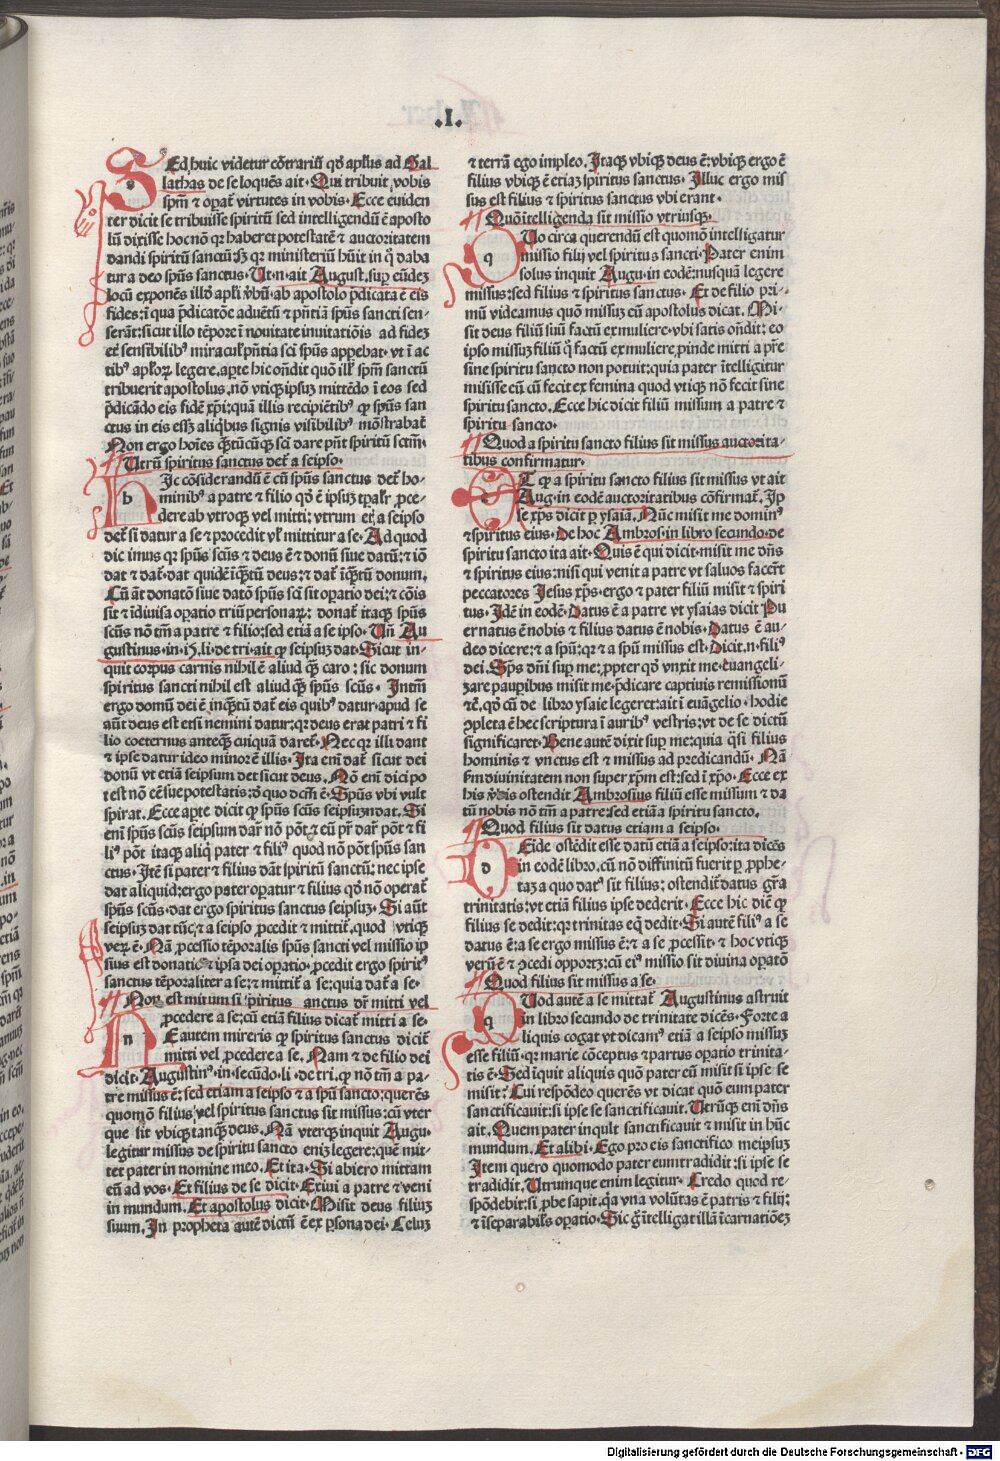 .I.
Sed huic videtur cōtrariū qd̄ apl̄us ad Gal
lathas de se loquēs ait. Qui tribuit vobis
spm̄ ⁊ operat̄ virtutes in vobis. Ecce euiden
ter dicit se tribuisse spiritū sed intelligendū ē aposto
lū dixisse hoc nō qr haberet potestatē ⁊ auctoritatem
dandi spiritū sanctū: sꝫ qr ministeriū hūit in q̄ daba
tur a deo spūs sanctus. Ut .n. ait August. suꝑ eūdeꝫ
locū exponēs illō apl̄i v̄bū. ab apostolo p̄dicata ē eis
fides: ī qua p̄dicatōe aduētū ⁊ pn̄tiā spūs sancti sen-
serāt: sicut illo tēpore ī nouitate inuitatiōis ad fidez
et sensibilibꝰ miracul̄ pn̄tia sci spūs apꝑebat. vt ī ac
tibꝰ apl̄oꝝ legere. aꝑte hic on̄dit quō ill̓ spm̄ sanctū
tribuerit apostolus. nō vtiqꝫ ipsuꝫ mittēdo ī eos sed
p̄dicādo eis fidē xp̄i: quā illis recipiētibꝰ ꝙ spūs san
ctus in eis esseꝫ aliqbus signis visibilibꝰ mōstrabat̄
Non ergo hoīes q̄ꝫtūcūqꝫ sci dare pn̄t spiritū sctm̄.
Utrū spiritus sanctus det̄ a seipso.
hIc cōsiderandū ē cū spūs sanctus det̄ ho-
minibꝰ a patre ⁊ filio qd̄ ē ipsuꝫ tpal̄r ꝓce-
dere ab vtroqꝫ vel mitti: vtrum et a seipso
det̄ si datur a se ⁊ procedit vl̓ mittitur a se. Ad quod
dicimus qr spūs scūs ⁊ deus ē ⁊ donū siue datū: ⁊ iō
dat ⁊ dat̄. dat quidē īq̄ꝫtū deus: ⁊ dat̄ īq̄ꝫtū donum.
Cū āt donatō siue datō spūs sci sit oꝑatio dei: ⁊ cōis
sit ⁊ īdiuisa oꝑatio triū personaꝝ: donat̄ itaqꝫ spūs
scūs nō tm̄ a patre ⁊ filio: sed etiā a seipso. Un̄ Au
gustinus. in .15. li. de tri. ait ꝙ seipsuꝫ dat. Sicut in-
quit corpus carnis nihil ē aliud q̄ꝫ caro: sic donum
spiritus sancti nihil est aliud q̄ꝫ spūs scūs. Intm̄
ergo domū dei ē inq̄ꝫtū dat̄ eis quibꝰ datur. apud se
aūt deus est etsi nemini datur: qr deus erat patri ⁊ fi
lio coeternus anteq̄ꝫ cuiquā daret̄. Nec qr illi dant
⁊ ipse datur ideo minor ē illis. Ita eni dat̄ sicut dei
donū vt etiā seipsum det sicut deus. Nō enī dici po
test nō eē sue potestatis: d̄ quo dcm̄ ē. Spūs vbi vult
spirat. Ecce aꝑte dicit ꝙ spūs scūs seipsuꝫ dat. Si
enī spūs scūs seipsum dar̄ nō pōt ⁊ eū pr̄ dar̄ pōt ⁊ fi
liꝰ pōt itaqꝫ aliq̄ pater ⁊ filiꝰ quod nō pōt spūs san
ctus. Itē si pater ⁊ filius dāt spiritū sanctū: nec ipse
dat aliquid: ergo pater oꝑatur ⁊ filius qd̄ nō operat̄
spūs scūs. dat ergo spiritus sanctus seipsuꝫ. Si aūt
seipsuꝫ dat tūc ⁊ a seipso ꝓcedit ⁊ mittit̄. quod vtiqꝫ
veꝝ ē. Nā ꝓcessio tēporalis spūs sancti vel missio ip
sius est donatio ⁊ ipsa dei oꝑatio. ꝓcedit ergo spiritꝰ
sanctus tēporaliter a se: ⁊ mittit̄ a se: quia dat̄ a se.
Non est mirum si spiritus sanctus dr̄ mitti vel
ꝓcedere a se: cū etiā filius dicat̄ mitti a se.
nE autem mireris ꝙ spiritus sanctus dicit̄
mitti vel ꝓcedere a se. Nam ⁊ de filio dei
dicit. Augustinꝰ. in. secūdo. li. de tri. ꝙ nō tm̄ a pa-
tre missus ē: sed etiam a seipso ⁊ a spū sancto: querēs
quomō filius vel spiritus sanctus sit missus: cū vter
que sit vbiqꝫ tanq̄ꝫ deus. Nā vterqꝫ inquit Augu.
legitur missus de spiritu sancto eniꝫ legere: quē mit-
tet pater in nomine meo. Et ita. Si abiero mittam
eū ad vos. Et filius de se dicit. Exiui a patre ⁊ veni
in mundum. Et apostolus dicit. Misit deus filiuꝫ
suum. In propheta autē dictū ē ex ꝑsona dei. Celuꝫ
⁊ terrā ego impleo. Itaqꝫ vbiqꝫ deus ē: vbiqꝫ ergo ē
filius vbiqꝫ ē etiaꝫ spiritus sanctus. Illuc ergo mis
sus est filius ⁊ spiritus sanctus vbi erant.
Quō ītelligenda sit missio vtriusqꝫ.
qUo circa querendū est quomō intelligatur
missio filij vel spiritus sancti. Pater enim
solus inquit Augu. in eodē: nusquā legere
missus: sed filius ⁊ spiritus sanctus. Et de filio pri-
mū videamus quō missuꝫ eū apostolus dicat. Mi-
sit deus filiū suū factū ex muliere. vbi satis on̄dit: eo
ipso missuꝫ filiū q̄ factū ex muliere. ꝓinde mitti a pr̄e
sine spiritu sancto non potuit: quia pater ītelligitur
misisse eū cū fecit ex femina quod vtiqꝫ nō fecit sine
spiritu sancto. Ecce hic dicit filiū missum a patre ⁊
spiritu sancto.
Quod a spiritu sancto filius sit missus auctorita-
tibus confirmatur.
eT ꝙ a spiritu sancto filius sit missus vt ait
Aug. in eodē auctoritatibus cōfirmat̄. Ip
se xp̄s dicit ꝑ ysaiā. Nūc misit me dominꝰ
⁊ spiritus eius. De hoc Ambros. in libro secundo. de
spiritu sancto ita ait. Quis ē qui dicit. misit me dn̄s
⁊ spiritus eius: nisi qui venit a patre vt saluos facer̄t
peccatores Iesus xp̄s. ergo ⁊ pater filiū misit ⁊ spiri
tus. Idē in eodē. Datus ē a patre vt ysaias dicit Pu
er natus ē nobis ⁊ filius datus ē nobis. Datus ē au-
deo dicere: ⁊ a spū: qr ⁊ a spū missus est. Dicit .n. filiꝰ
dei. Spūs dn̄i suꝑ me: ꝓpter qd̄ vnxit me. euangeli-
zare pauꝑibus misit me. p̄dicare captiuis remissionū
⁊c̄. qd̄ cū de libro ysaie legeret: ait ī euāgelio. hodie
ꝯpleta ē hec scriptura ī auribꝰ vestris: vt de se dictū
significaret. Bene autē dixit suꝑ me: quia q̄si filius
hominis ⁊ vnctus est ⁊ missus ad predicandū. Nā
ẜm diuinitatem non super xp̄m est: sed ī xp̄o. Ecce ex
his v̄bis ostendit Ambrosius filiū esse missum ⁊ da
tū nobis nō tm̄ a patre: sed etiā a spiritu sancto.
Quod filius sit datus etiam a seipso.
dEide ostēdit esse datū etiā a seipso: ita dicēs
in eodē libro. cū nō diffinitū fuerit ꝑ ꝓphe-
taꝫ a quo datꝰ sit filius: ostendit̄ datus gr̄a
trinitatis: vt etiā filius ipse dederit. Ecce hic diē ꝙ
filius se dedit: qr trinitas eū dedit. Si autē filiꝰ a se
datus ē: a se ergo missus ē: ⁊ a se ꝓcessit. ⁊ hoc vtiqꝫ
verū ē ⁊ ꝯcedi oportꝫ: cū eiꝰ missio sit diuina oꝑatō
Quod filius sit missus a se.
qUod autē a se mittat̄ Augustinus astruit
in libro secundo de trinitate dicēs. Forte a
liquis cogat vt dicamꝰ etiā a seipso missuꝫ
esse filiū. qr marie cōceptus ⁊ partus oꝑatio trinita-
tis ē. Sed īquit aliquis quō pater eū misit si ipse se
misit: Cui respōdeo querēs vt dicat quō eum pater
sanctificauit: si ipse se sanctificauit. Utrūqꝫ enī dn̄s
ait. Quem pater inquit sanctificauit ⁊ misit in hūc
mundum. Et alibi. Ego pro eis sanctifico meipsuꝫ
Item quero quomodo pater eum tradidit: si ipse se
tradidit. Utrumque enim legitur. Credo quod re-
spōdebit: si ꝓbe sapit. qa vna volūtas ē patris ⁊ filij:
⁊ īseparabil̓s oꝑatio. Sic g̓ ītelligat illā īcarnatiōeꝫ
Digitalisierung gefördert durch die Deutsche Forschungsgemeinschaft - DFG